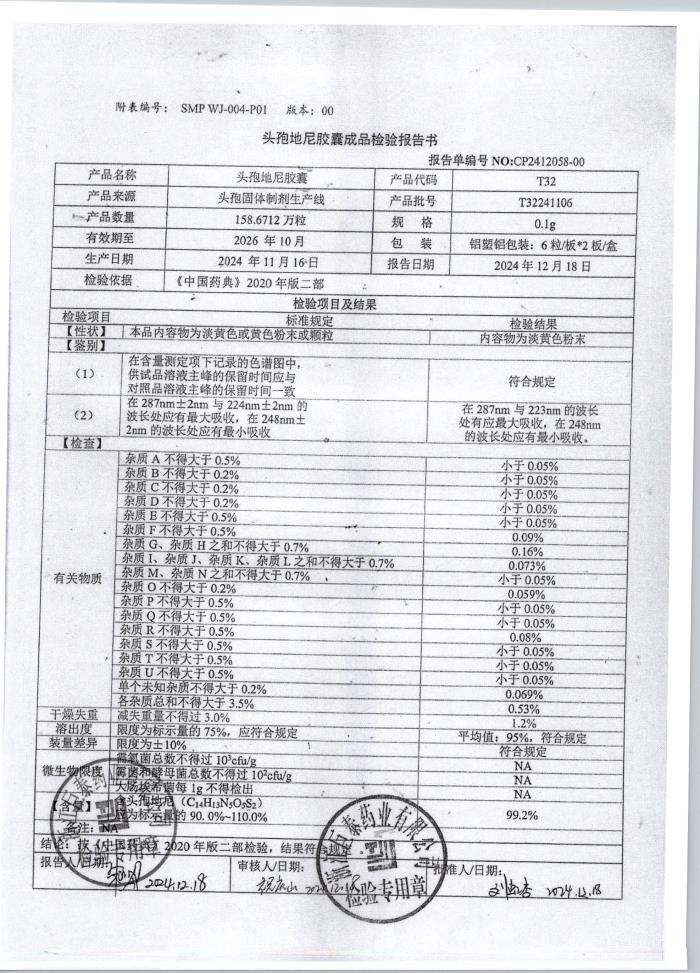 附表编号： SMP WJ-004-P01 版本：00
头孢地尼胶囊成品检验报告书
报告单编号 NO:CP2412058-00
产品名称 头孢地尼胶囊 产品代码 T32
产品来源 头孢固体制剂生产线 产品批号 T32241106
产品数量 158.6712 万粒 规 格 0.1g
有效期至 2026 年 10 月 包 装 铝塑铝包装：6 粒/板*2 板/盒
生产日期 2024 年 11 月 16 日 报告日期 2024 年 12 月 18 日
检验依据 《中国药典》2020 年版二部
检验项目及结果
检验项目 标准规定 检验结果
【性状】 本品内容物为淡黄色或黄色粉末或颗粒 内容物为淡黄色粉末
【鉴别】
（1） 在含量测定项下记录的色谱图中，
供试品溶液主峰的保留时间应与
对照品溶液主峰的保留时间一致 符合规定
（2） 在 287nm±2nm 与 224nm±2nm 的
波长处应有最大吸收，在 248nm±
2nm 的波长处应有最小吸收
在 287nm 与 223nm 的波长
处有应最大吸收，在 248nm
的波长处应有最小吸收。
【检查】
有关物质
杂质 A 不得大于 0.5% 小于 0.05%
杂质 B 不得大于 0.2% 小于 0.05%
杂质 C 不得大于 0.2% 小于 0.05%
杂质 D 不得大于 0.2% 小于 0.05%
杂质 E 不得大于 0.5% 小于 0.05%
杂质 F 不得大于 0.5% 0.09%
杂质 G、杂质 H 之和不得大于 0.7% 0.16%
杂质 I、杂质 J、杂质 K、杂质 L 之和不得大于 0.7% 0.073%
杂质 M、杂质 N 之和不得大于 0.7% 小于 0.05%
杂质 O 不得大于 0.2% 0.059%
杂质 P 不得大于 0.5% 小于 0.05%
杂质 Q 不得大于 0.5% 小于 0.05%
杂质 R 不得大于 0.5% 0.08%
杂质 S 不得大于 0.5% 小于 0.05%
杂质 T 不得大于 0.5% 小于 0.05%
杂质 U 不得大于 0.5% 小于 0.05%
单个未知杂质不得大于 0.2% 0.069%
各杂质总和不得大于 3.5% 0.53%
干燥失重 减失重量不得过 3.0% 1.2%
溶出度 限度为标示量的 75%，应符合规定 平均值：95%，符合规定
装量差异 限度为±10% 符合规定
微生物限度 需氧菌总数不得过 10³cfu/g NA
霉菌和酵母菌总数不得过 10²cfu/g NA
大肠埃希菌每 1g 不得检出 NA
【含量】 含头孢地尼（C₁₄H₁₃N₅O₅S₂）
应为标示量的 90. 0%~110.0% 99.2%
备注：NA
结论：按《中国药典》2020 年版二部检验，结果符合规定
报告人/日期： 2024.12.18 审核人/日期： 批准人/日期： 2024.12.18
药业有限公司
检验专用章